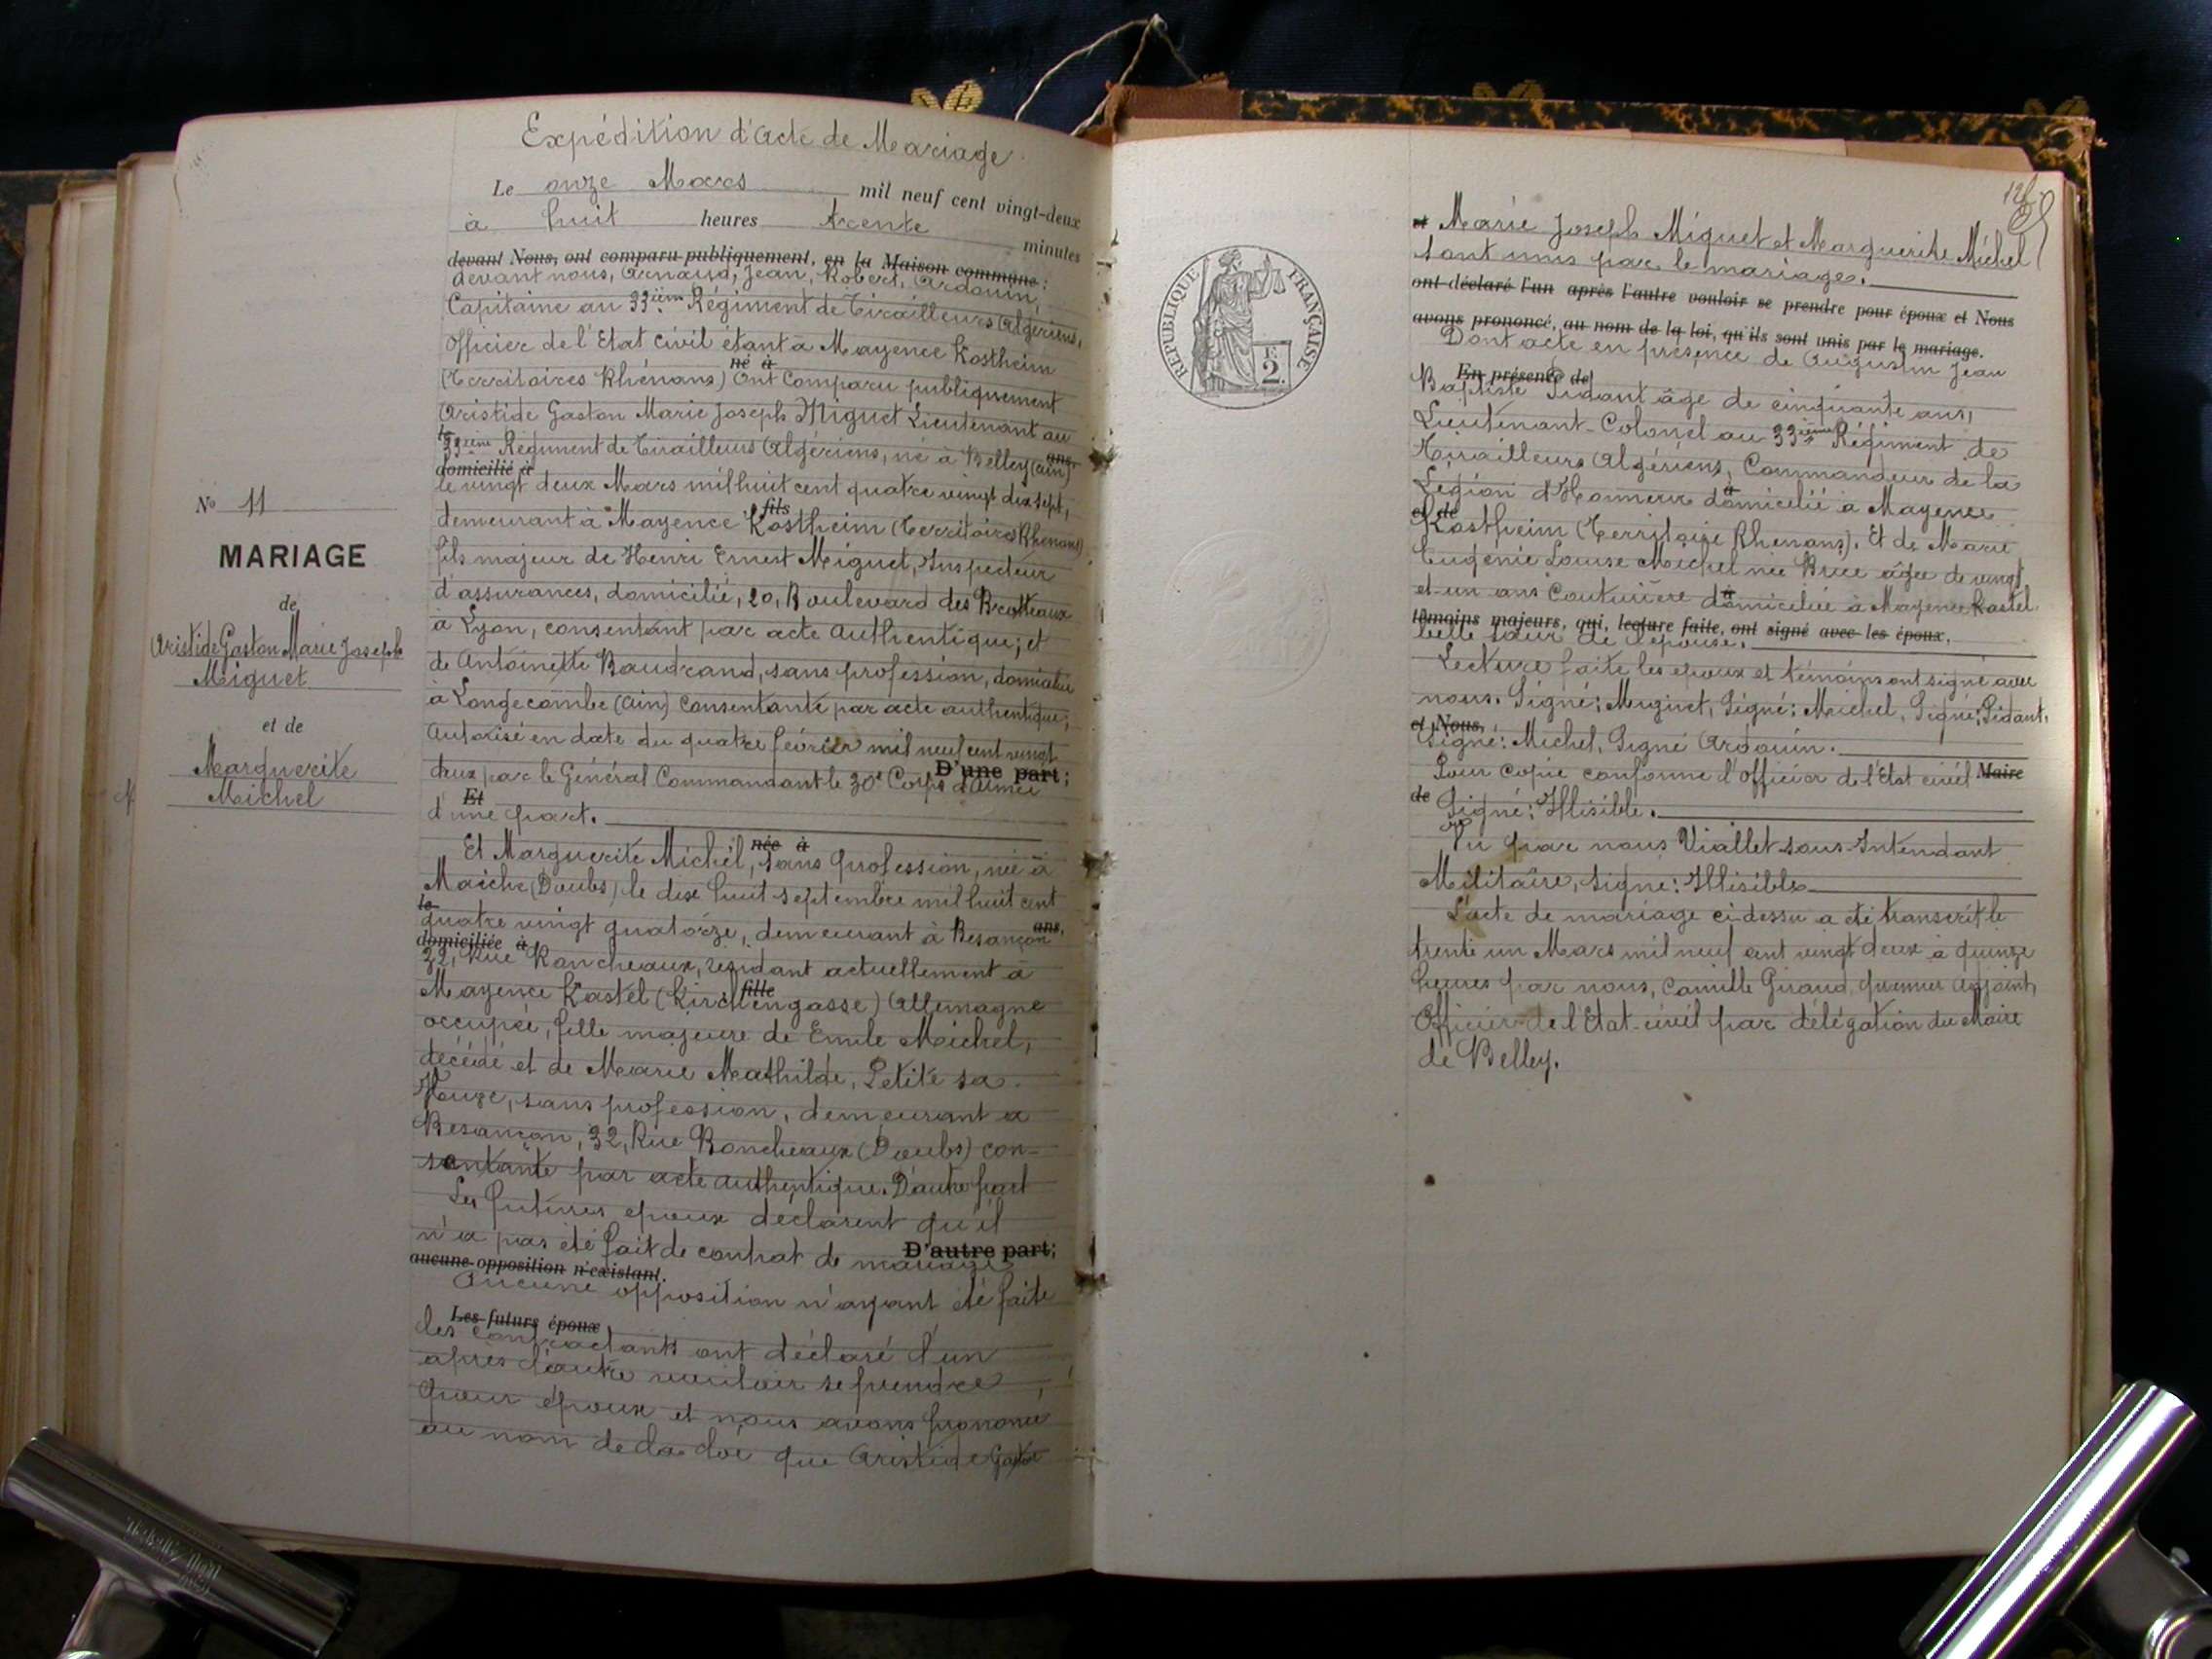 Expédition d'Acte de Mariage
Le onze Mars mil neuf cent vingt-deux
à huit heures trente minutes
devant Nous, ont comparu publiquement, en la Maison commune :
devant nous, Arnaud, Jean, Robert, Ardouin,
Capitaine au 33ième Régiment de Tirailleurs Algériens,
Officier de l'Etat Civil étant à Mayence Kostheim
né à
(Territoires Rhénans) Ont Comparu publiquement
Aristide Gaston Marie Joseph Miguet Lieutenant au
le
33ième Régiment de Tirailleurs Algériens, né à Belley (Ain)
ans,
domicilié à
le vingt deux Mars mil huit cent quatre vingt dix sept,
fils
demeurant à Mayence Kostheim (Territoires Rhénans)
fils majeur de Henri Ernest Miguet, Inspecteur
d'assurances, domicilié, 20, Boulevard des Brotteaux
à Lyon, consentant par acte Authentique; et
de Antoinette Baudrand, sans profession, domiciliée
à Longecombe (Ain) Consentante par acte authentique;
Autorisé en date du quatre février mil neuf cent vingt
D'une part;
deux par le Général Commandant le 30e Corps d'Armée
Et
d'une part.
née à
Et Marguerite Michel, sans profession, née à
Maiche (Doubs) le dix huit septembre mil huit cent
le
quatre vingt quatorze, demeurant à Besançon
ans,
domiciliée à
32, Rue Roncheaux, résidant actuellement à
fille
Mayence Kastel (Kirchengasse) Allemagne
occupée, fille majeure de Emile Michel,
décédé et de Marie Mathilde, Petite sa
Veuve, sans profession, demeurant à
Besançon, 32, Rue Roncheaux (Doubs) con-
sentante par acte authentique. D'autre part
Les futures époux déclarent qu'il
n'a pas été fait de contrat de mariage
D'autre part;
aucune opposition n'existant.
Aucune opposition n'ayant été faite
Les futurs époux
les contractants ont déclaré l'un
après l'autre vouloir se prendre
pour époux et nous avons prononcé
au nom de la loi que Aristide Gaston
No 11
MARIAGE
de
Aristide Gaston Marie Joseph
Miguet
et de
Marguerite
Michel
REPUBLIQUE FRANÇAISE
2 F.
et Marie Joseph Miguet et Marguerite Michel
sont unis par le mariage.
ont déclaré l'un après l'autre vouloir se prendre pour époux et Nous
avons prononcé, au nom de la loi, qu'ils sont unis par le mariage.
Dont acte en présence de Augustin Jean
En présence de
Baptiste Pidant âgé de cinquante ans,
Lieutenant-Colonel au 33ième Régiment de
Tirailleurs Algériens, Commandeur de la
Légion d'Honneur domicilié à Mayence
à
et de
Kostheim (Territoire Rhénans). Et de Marie
Eugénie Louise Michel née Bruce âgée de vingt
et un ans Couturière domiciliée à Mayence Kastel
à
témoins majeurs, qui, lecture faite, ont signé avec les époux,
belle sœur de l'épouse.
Lecture faite les époux et témoins ont signé avec
nous. Signé: Miguet, Signé: Michel, Signé: Pidant,
et Nous,
Signé: Michel, Signé Ardouin.
Pour copie conforme l'Officier de l'Etat civil Maire
de
Signé: Illisible.
Vu par nous Viallet sous-Intendant
Militaire, signé: Illisible
L'acte de mariage ci dessu a été transcrit le
trente un Mars mil neuf cent vingt deux à quinze
heures par nous, Camille Giraud, premier adjoint,
Officier de l'Etat-civil par délégation du Maire
de Belley.